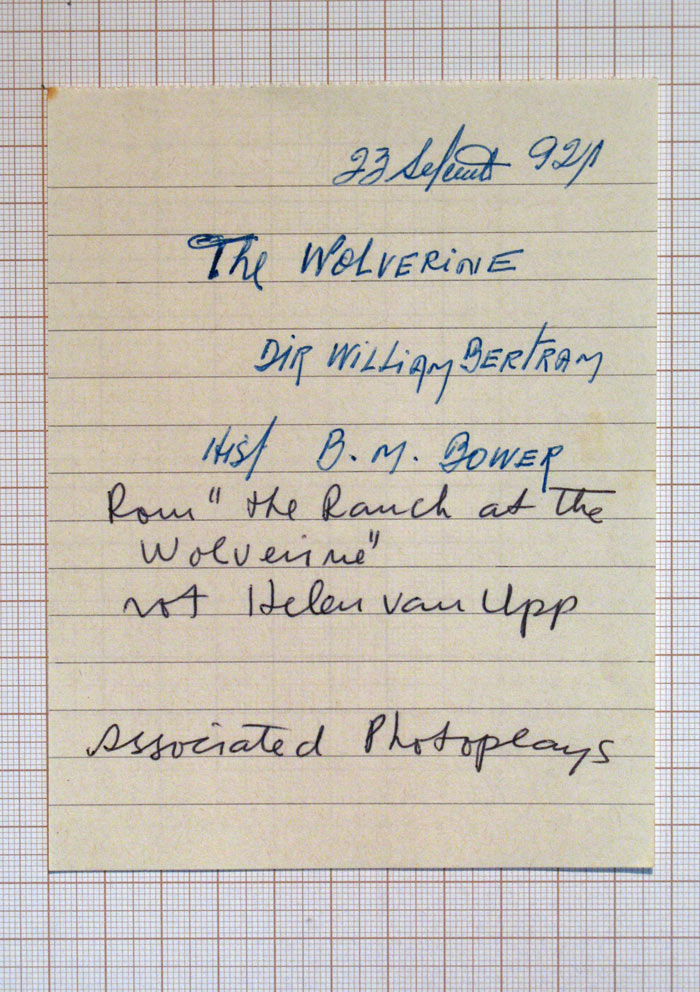 23 Septembre 921
The WOLVERINE
DIR WILLIAM BERTRAM
Hist B. M. BOWER
Rom " the Ranch at the
Wolverine"
not Helen van Upp
Associated Photoplays